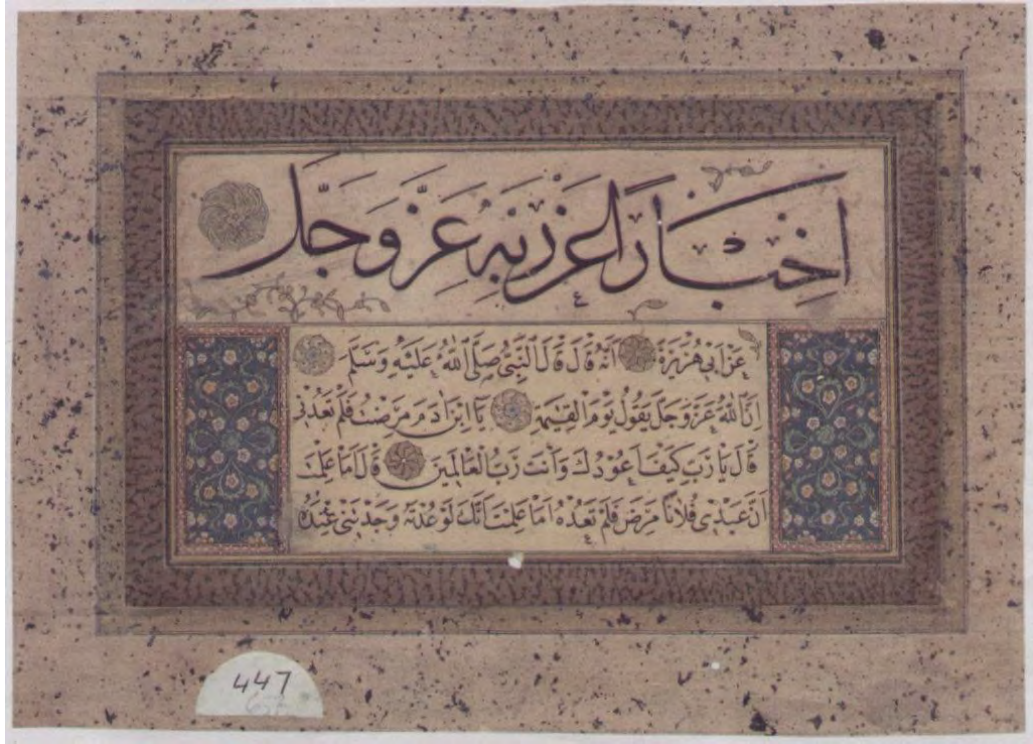 اخبارًا عن ربه عز وجل
عن ابي هريرة انه قال قال النبي صلى الله عليه وسلم
ان الله عز وجل يقول يوم القيمة يا ابن ادم مرضت فلم تعدني
قال يا رب كيف اعودك وانت رب العالمين قال اما علمت
ان عبدي فلانا مرض فلم تعده اما علمت انك لو عدته وجدتني عنده
447